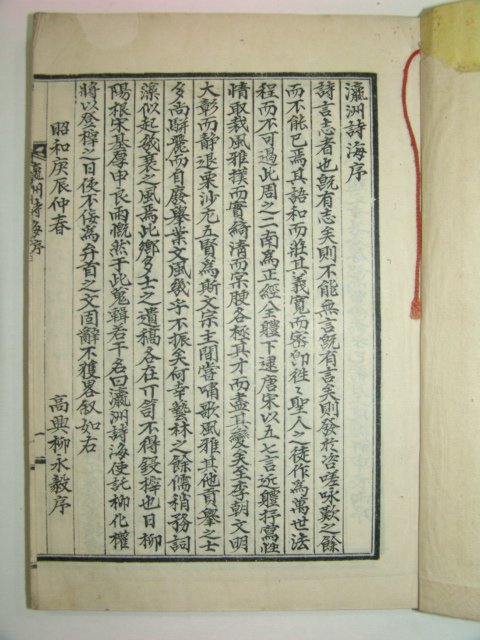 瀛洲詩海序
詩言志者也旣有志矣則不能無言旣有言矣則發於咨嗟咏歎之餘
而不能已焉其語和而莊其義寬而密卽徃〻聖人之徒作為萬世法
程而不可過此周之二南為正經全軆下逮唐宋以五七言近軆抒寫性
情取裁風雅撲而實綺清而宗腴各極其才而盡其變矣至李朝文明
大彰而靜退栗沙尤五賢為斯文宗主間嘗嘯歌風雅其他貢擧之士
多尚騈麗而自廢擧業文風幾乎不振矣何幸藝林之餘儒稍務詞
藻似起衰之風焉此鄉多士之遺稿各在丌笥不得鋟梓也日柳
陽根宋基厚申艮雨慨然于此蒐輯若干名曰瀛洲詩海使託柳化權
將以登梓之日使不侫為弁首之文固辭不獲畧叙如右
昭和庚辰仲春
高興柳永毅序
瀛洲詩海序
一